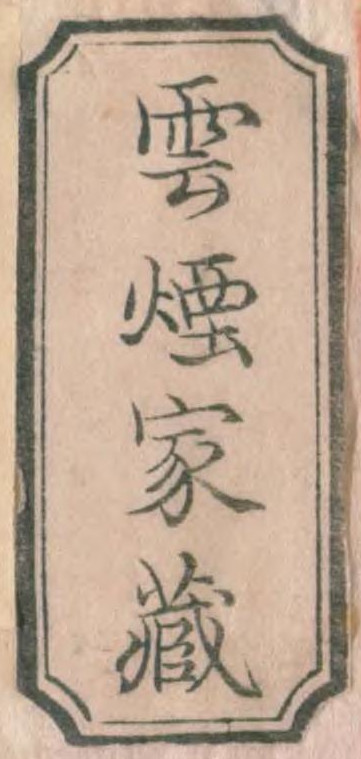 雲煙家藏